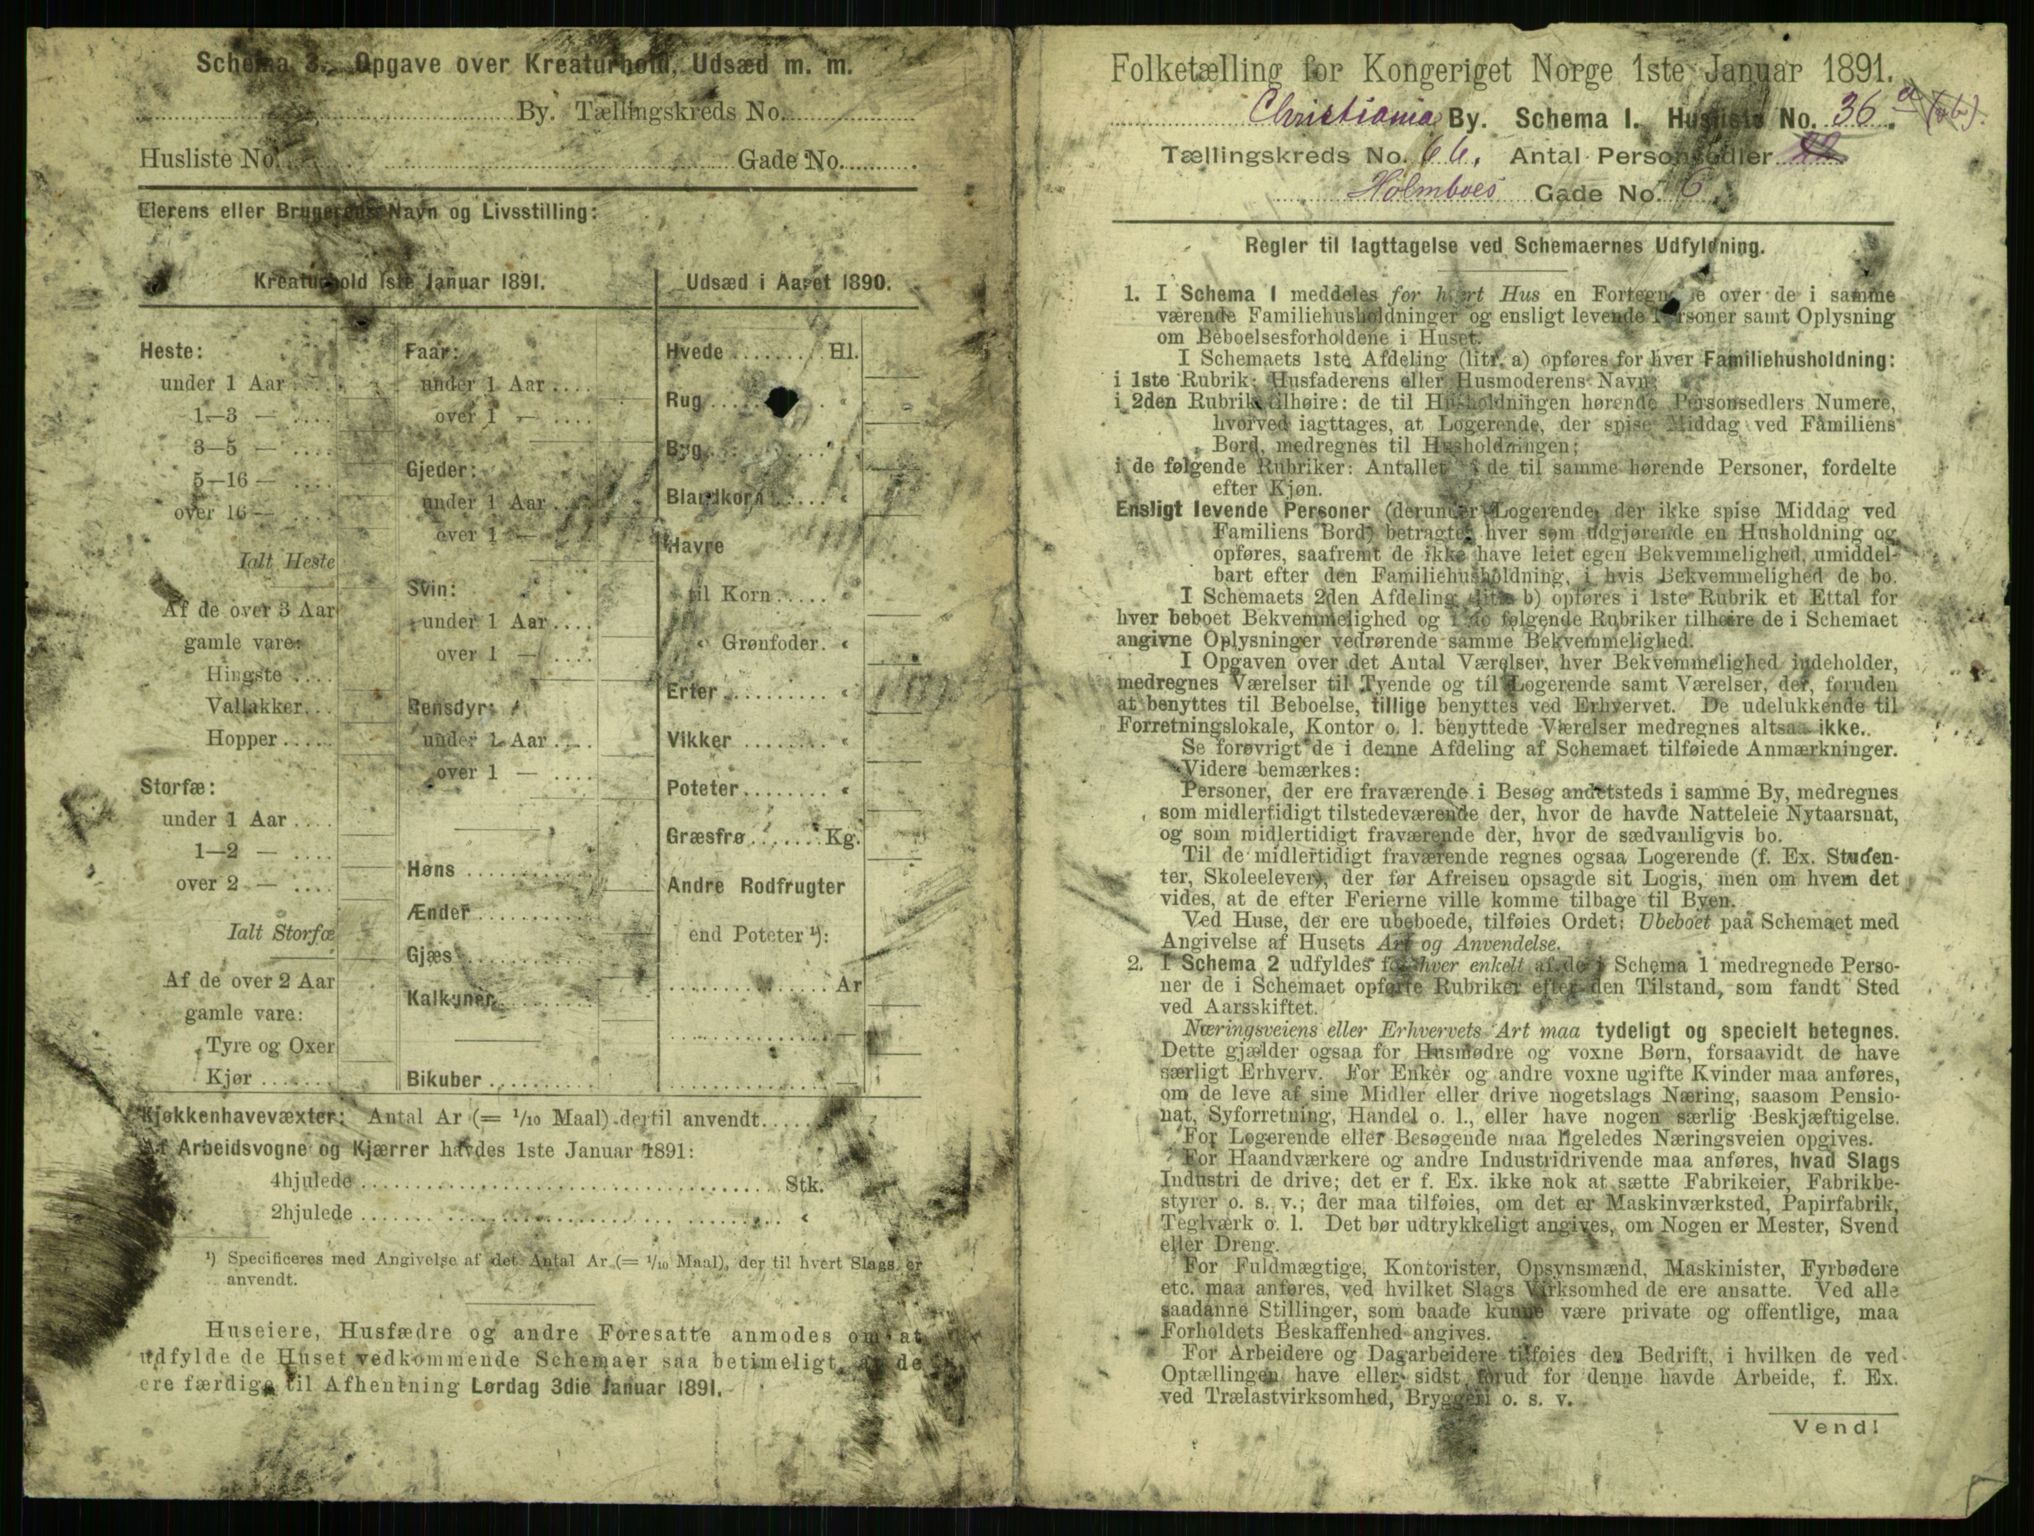 Schema 3. Opgave over Kreaturhold, Udsæd m. m.
By. Tællingskreds No.
Husliste No. Gade No.
Eierens eller Brugerens Navn og Livsstilling:
Kreaturhold 1ste Januar 1891.
Heste:
under 1 Aar
1—3 —
3—5 —
5—16 —
over 16 —
Ialt Heste
Af de over 3 Aar
gamle vare:
Hingste
Vallakker
Hopper
Storfæ:
under 1 Aar
1—2 —
over 2 —
Ialt Storfæ
Af de over 2 Aar
gamle vare:
Tyre og Oxer
Kjør
Faar:
under 1 Aar
over 1 —
Gjeder:
under 1 Aar
over 1 —
Svin:
under 1 Aar
over 1 —
Rensdyr:
under 1 Aar
over 1 —
Høns
Ænder
Gjæs
Kalkuner
Bikuber
Udsæd i Aaret 1890.
Hvede Hl.
Rug «
Byg «
Blandkorn «
Havre
til Korn «
« Grønfoder «
Erter «
Vikker «
Poteter «
Græsfrø Kg.
Andre Rodfrugter
end Poteter ¹):
Ar
—
—
Kjøkkenhavevæxter: Antal Ar (= 1/10 Maal) dertil anvendt
Af Arbeidsvogne og Kjærrer havdes 1ste Januar 1891:
4hjulede Stk.
2hjulede «
¹) Specificeres med Angivelse af det Antal Ar (= 1/10 Maal), der til hvert Slags er
anvendt.
Huseiere, Husfædre og andre Foresatte anmodes om at
udfylde de Huset vedkommende Schemaer saa betimeligt, at de
ere færdige til Afhentning Lørdag 3die Januar 1891.
Folketælling for Kongeriget Norge 1ste Januar 1891.
Christiania By. Schema 1. Husliste No. 36 a
Tællingskreds No. 66. Antal Personsedler
Holmboes Gade No. 6
Regler til Iagttagelse ved Schemaernes Udfyldning.
1. I Schema 1 meddeles for hvert Hus en Fortegnelse over de i samme
værende Familiehusholdninger og ensligt levende Personer samt Oplysning
om Beboelsesforholdene i Huset.
I Schemaets 1ste Afdeling (litr. a) opføres for hver Familiehusholdning:
i 1ste Rubrik: Husfaderens eller Husmoderens Navn;
i 2den Rubrik tilhøire: de til Husholdningen hørende Personsedlers Numere,
hvorved iagttages, at Logerende, der spise Middag ved Familiens
Bord, medregnes til Husholdningen;
i de følgende Rubriker: Antallet af de til samme hørende Personer, fordelte
efter Kjøn.
Ensligt levende Personer (derunder Logerende, der ikke spise Middag ved
Familiens Bord) betragtes hver som udgjørende en Husholdning og
opføres, saafremt de ikke have leiet egen Bekvemmelighed, umiddel-
bart efter den Familiehusholdning, i hvis Bekvemmelighed de bo.
I Schemaets 2den Afdeling (litr. b) opføres i 1ste Rubrik et Ettal for
hver beboet Bekvemmelighed og i de følgende Rubriker tilhøire de i Schemaet
angivne Oplysninger vedrørende samme Bekvemmelighed.
I Opgaven over det Antal Værelser, hver Bekvemmelighed indeholder,
medregnes Værelser til Tyende og til Logerende samt Værelser, der, foruden
at benyttes til Beboelse, tillige benyttes ved Erhvervet. De udelukkende til
Forretningslokale, Kontor o. l. benyttede Værelser medregnes altsaa ikke.
Se forøvrigt de i denne Afdeling af Schemaet tilføiede Anmærkninger.
Videre bemærkes:
Personer, der ere fraværende i Besøg andetsteds i samme By, medregnes
som midlertidigt tilstedeværende der, hvor de havde Natteleie Nytaarsnat,
og som midlertidigt fraværende der, hvor de sædvanligvis bo.
Til de midlertidigt fraværende regnes ogsaa Logerende (f. Ex. Studen-
ter, Skoleelever), der før Afreisen opsagde sit Logis, men om hvem det
vides, at de efter Ferierne ville komme tilbage til Byen.
Ved Huse, der ere ubeboede, tilføies Ordet: Ubeboet paa Schemaet med
Angivelse af Husets Art og Anvendelse.
2. I Schema 2 udfyldes for hver enkelt af de i Schema 1 medregnede Perso-
ner de i Schemaet opførte Rubriker efter den Tilstand, som fandt Sted
ved Aarsskiftet.
Næringsveiens eller Erhvervets Art maa tydeligt og specielt betegnes.
Dette gjælder ogsaa for Husmødre og voxne Børn, forsaavidt de have
særligt Erhverv. For Enker og andre voxne ugifte Kvinder maa anføres,
om de leve af sine Midler eller drive nogetslags Næring, saasom Pensio-
nat, Syforretning, Handel o. l., eller have nogen særlig Beskjæftigelse.
For Logerende eller Besøgende maa ligeledes Næringsveien opgives.
For Haandværkere og andre Industridrivende maa anføres, hvad Slags
Industri de drive; det er f. Ex. ikke nok at sætte Fabrikeier, Fabrikbe-
styrer o. s. v.; der maa tilføies, om det er Maskinværksted, Papirfabrik,
Teglværk o. l. Det bør udtrykkeligt angives, om Nogen er Mester, Svend
eller Dreng.
For Fuldmægtige, Kontorister, Opsynsmænd, Maskinister, Fyrbødere
etc. maa anføres, ved hvilket Slags Virksomhed de ere ansatte. Ved alle
saadanne Stillinger, som baade kunne være private og offentlige, maa
Forholdets Beskaffenhed angives.
For Arbeidere og Dagarbeidere tilføies den Bedrift, i hvilken de ved
Optællingen have eller sidst forud for denne havde Arbeide, f. Ex.
ved Trælastvirksomhed, Bryggeri o. s. v.
Vend!